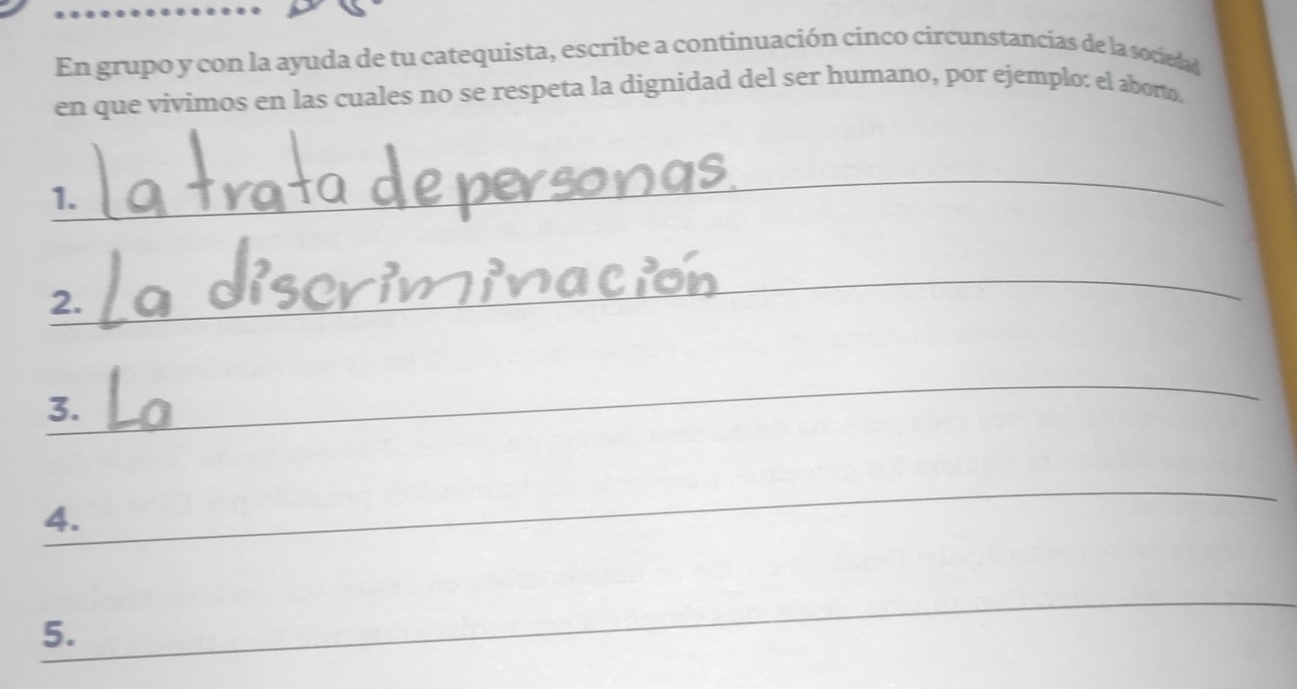 En grupo y con la ayuda de tu catequista, escribe a continuación cinco circunstancias de la sociedad
en que vivimos en las cuales no se respeta la dignidad del ser humano, por ejemplo: el aborto.
1. La trata de personas.
2. La discriminación
3. La
4.
5.